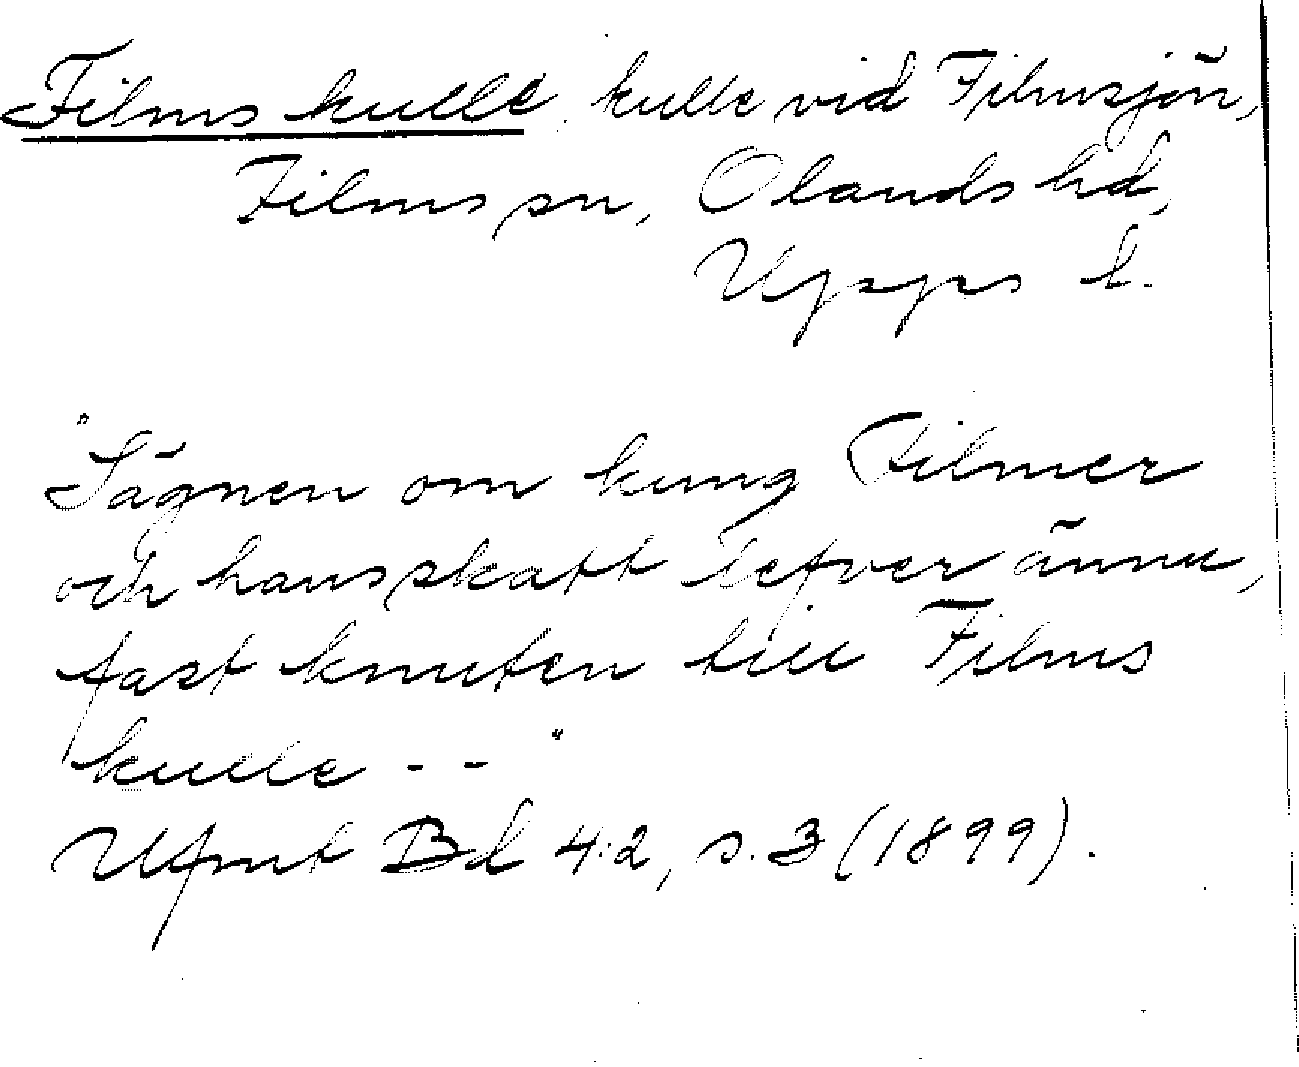 Films kulle, kulle vid Filmsjön,
Films sn, Olands hd,
Upps l.
"Sägnen om kung Filmer
och hans skatt lefver ännu,
fast knuten till Films
kulle - - "
Ufmt Bd 4:2, s. 3 (1899).